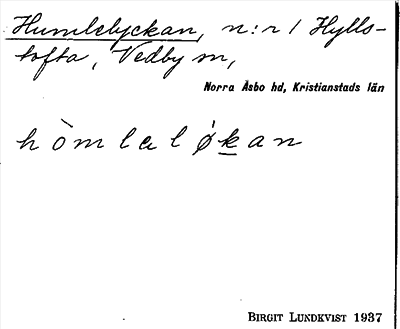 Humlelyckan, n:r 1 Hylls-
tofta, Vedby sn,
Norra Åsbo hd, Kristianstads län
hòmlaløkan
BIRGIT LUNDKVIST 1937